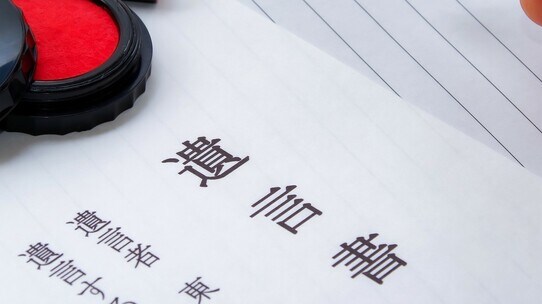 遺言書
遺言者 東
遺言する